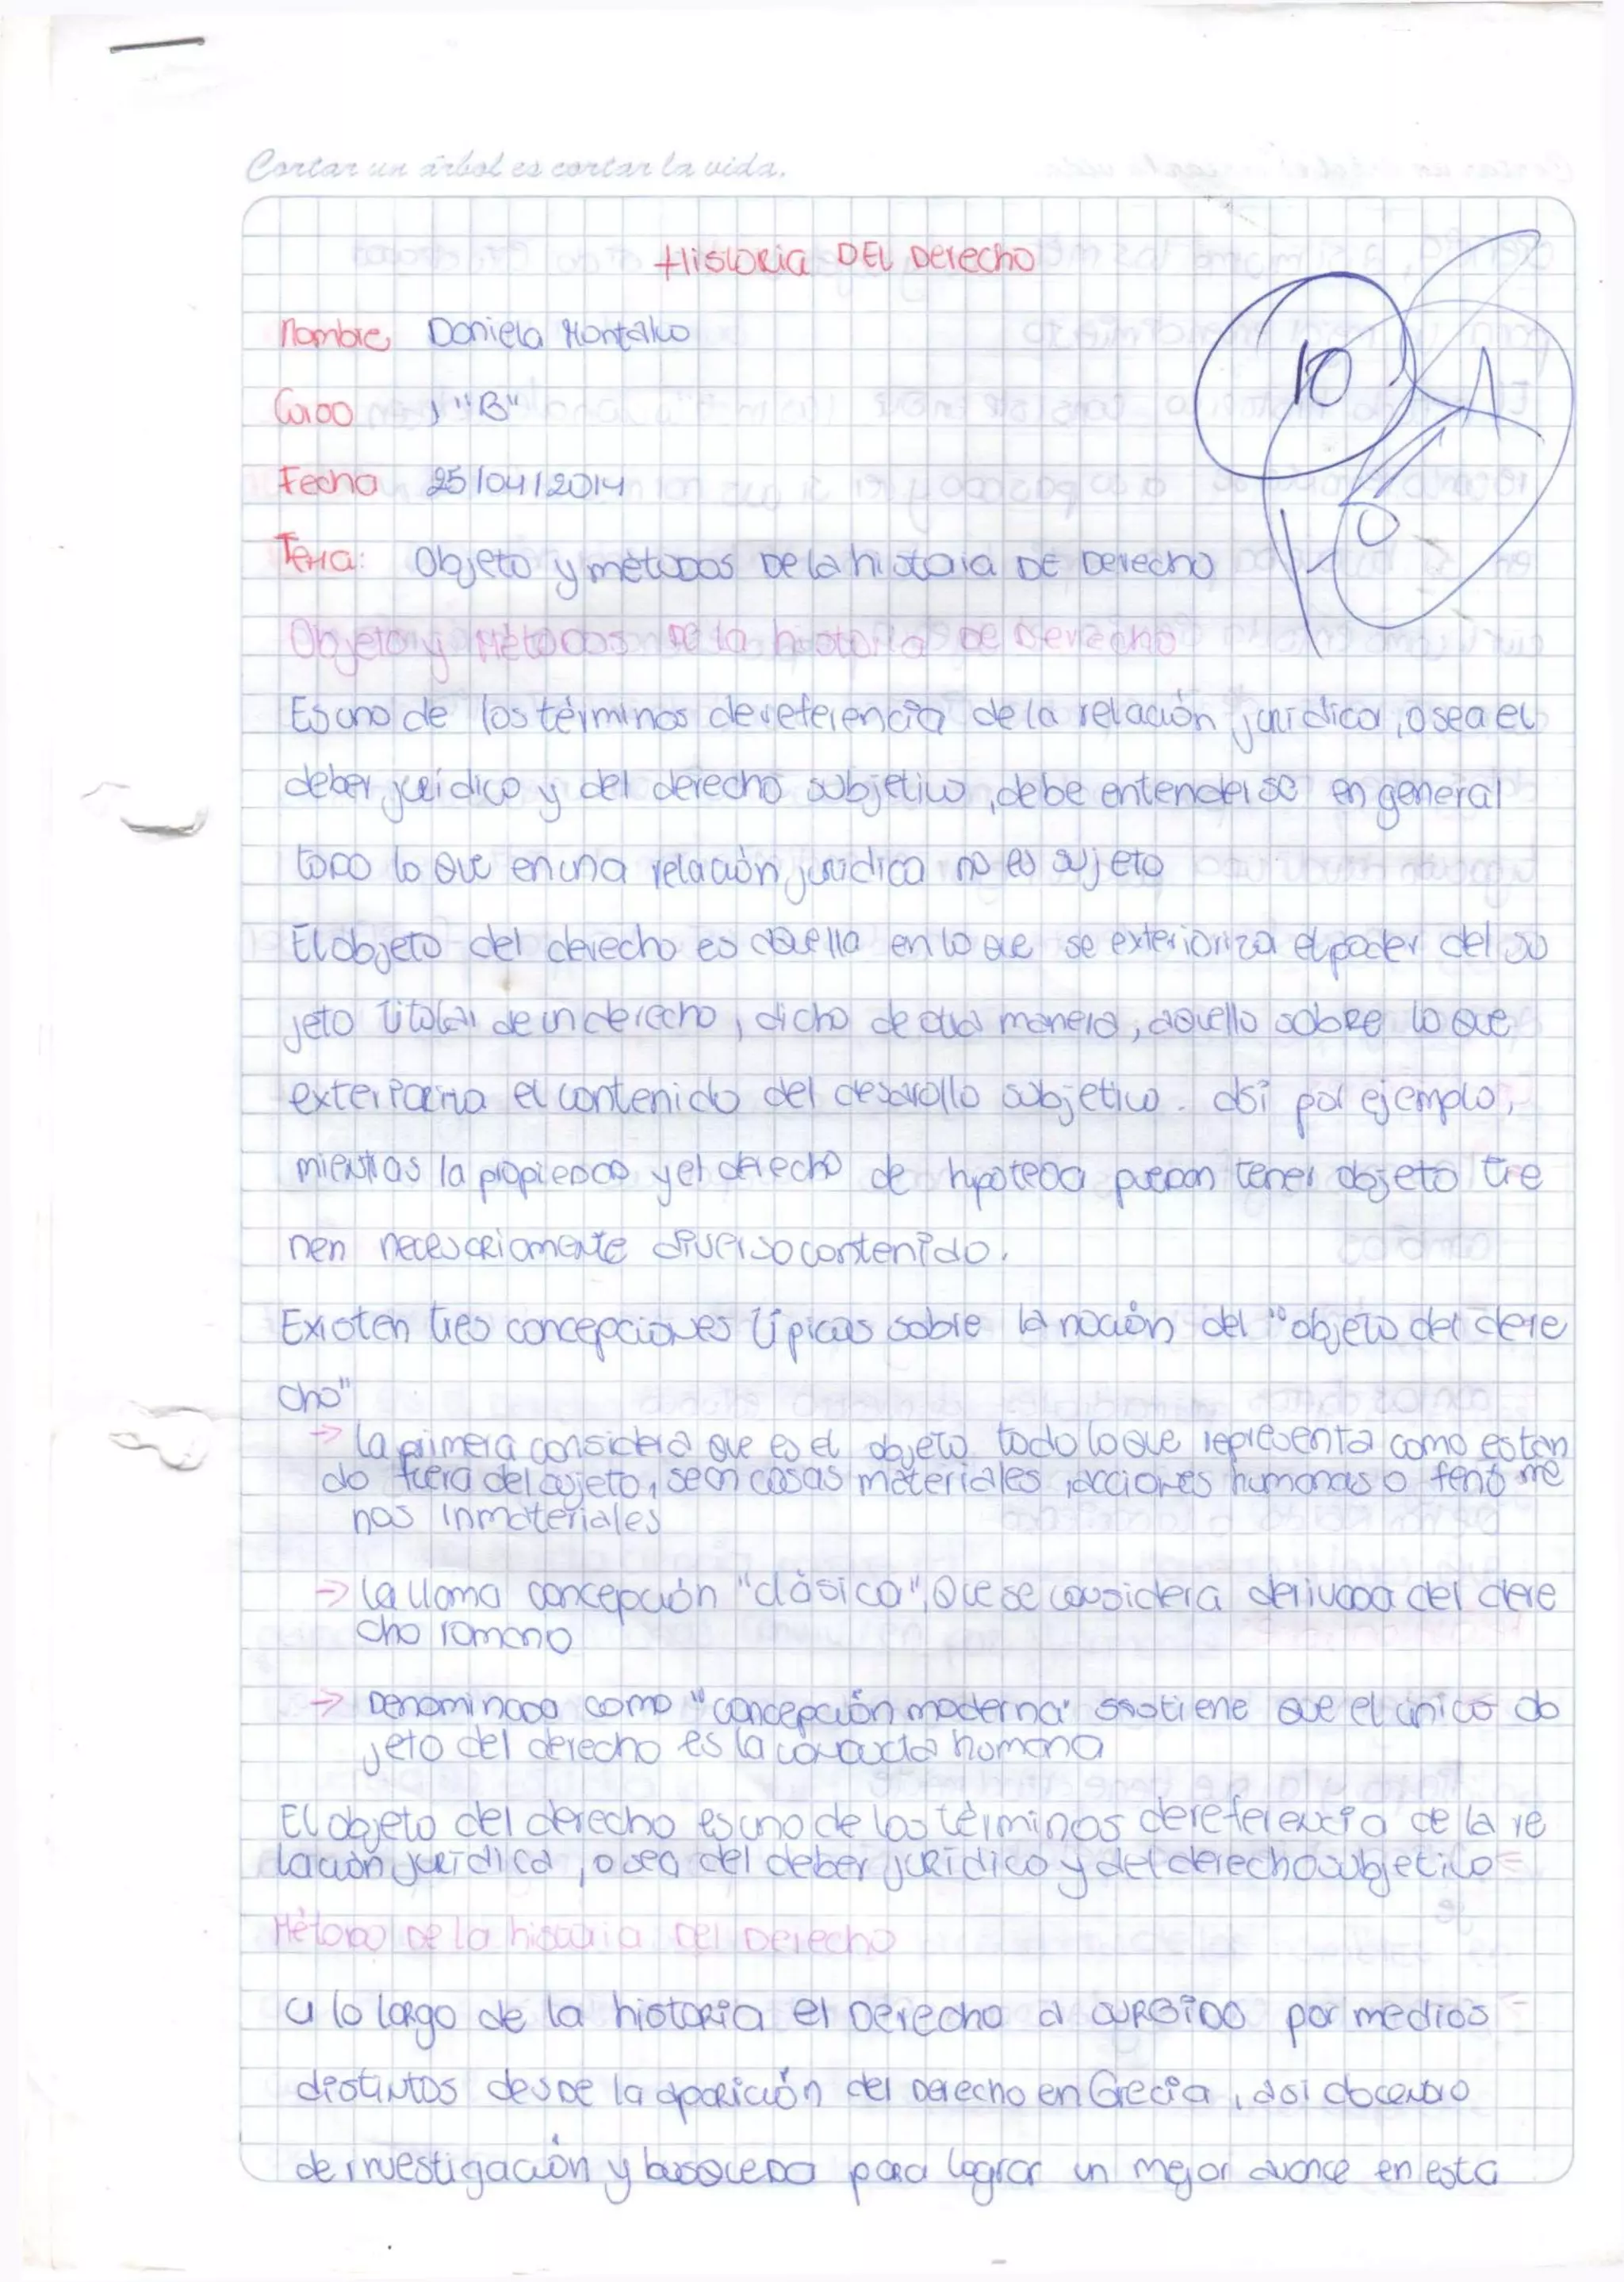 Cortar un árbol es cortar la vida.
Historia DEL Derecho
10
Nombre Daniela Montalvo
Curso 1 "B"
Fecha 25/04/2014
Tema: Objeto y métodos De la historia DE Derecho
Objeto y Métodos De la historia De Derecho
Es uno de los términos de referencia de la relación jurídica, o sea el
deber jurídico y del derecho subjetivo, debe entenderse en general
todo lo que en una relación jurídica no es sujeto
El objeto del derecho es aquella en lo que se exterioriza el poder del su
jeto titular de un derecho, dicho de otra manera, aquello sobre lo que
el contenido del desarollo subjetivo. así por ejemplo,
mientras la propiedad y el derecho de hipoteca puedan tener objeto tie
nen necesariamente diverso contenido.
Existen tres concepciones típicas sobre la noción del "objeto del dere
cho"
→ la primera considera que es el objeto todo lo que representa como estan
do fuera del sujeto, sean cosas materiales, acciones humanas o fenóme
nos inmateriales
→ la llama concepción "clásica", que se considera derivada del dere
cho romano
→ Denominada como "concepción moderna" sostiene que el único ob
jeto del derecho es la conducta humana
El objeto del derecho es uno de los términos de referencia de la re
lación jurídica, o sea del deber jurídico y del derecho subjetivo
Método De la historia Del Derecho
a lo largo de la historia el Derecho a surgido por medios
distintos desde la aparición del Derecho en Grecia, así
de investigación y busqueda para lograr un mejor avance en esta